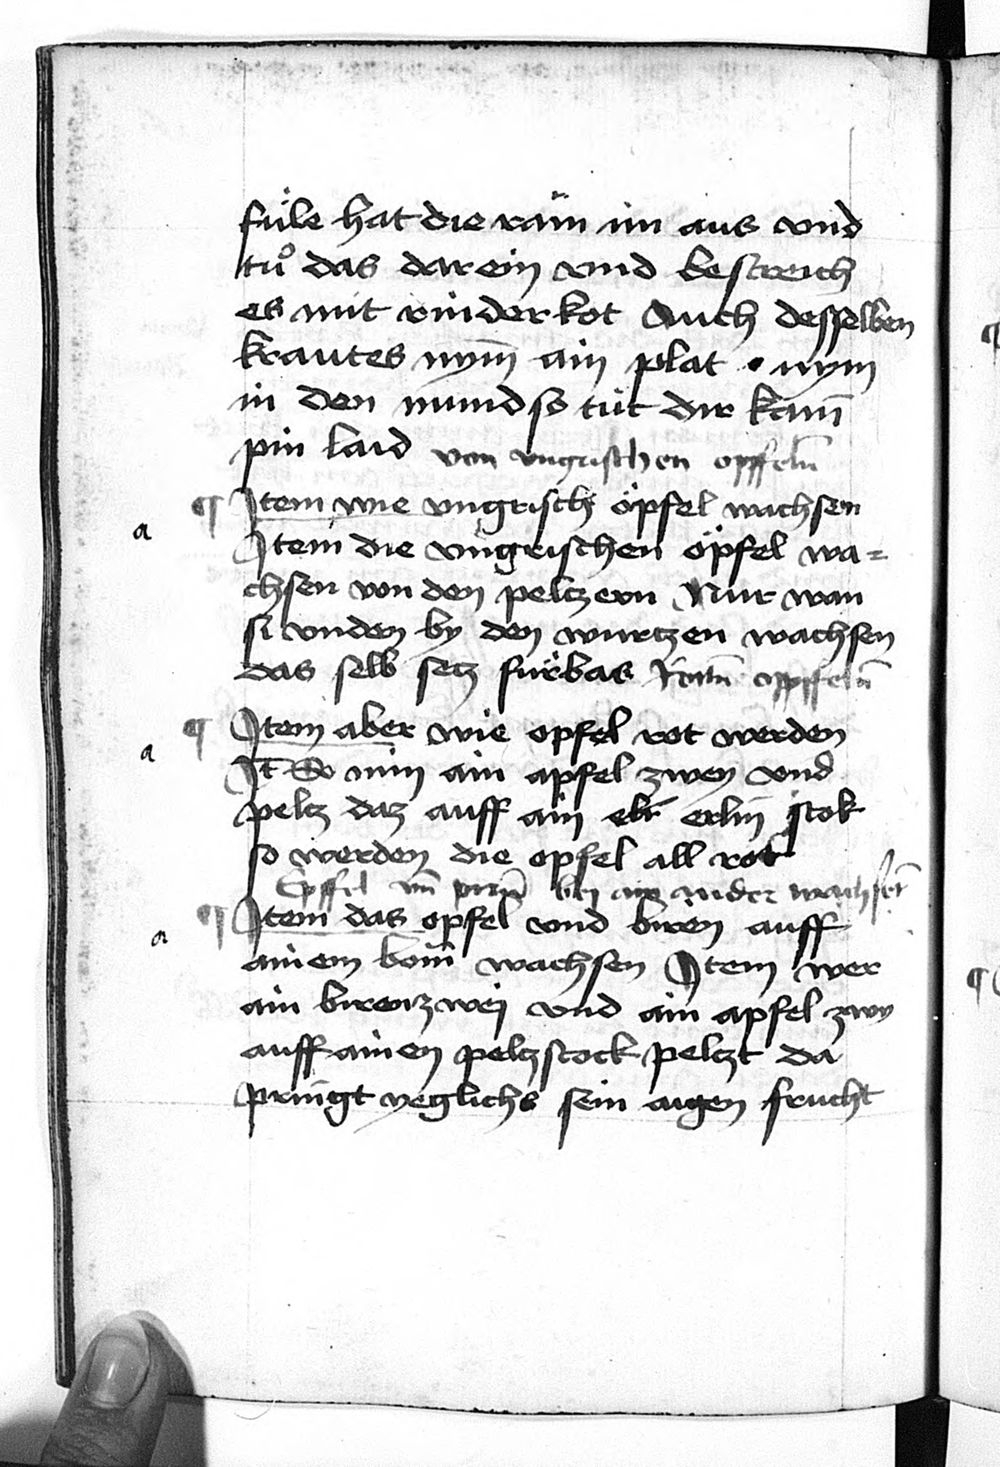 fuͤle hat die raͤm im aus vnd
tuͦ das darein vnd bestreich
es mit rinderkot Auch desselben
krautes nym̄ ain plat • nym
in den mund so tuͤt dir kain̄
pin laid von vngrischen opffeln̄
¶ Item wie vngrisch oͤpfel wachsen
a
Item die vngrischen oͤpfel wa=
chsen von den peltzern Nur wan
si vnden by den wurtzen wachsen
das selb setz fuͤrbas Rottn̄ oppfeln̄
¶ Item aber wie opfel rot werden
a
It̄ So nim ain apfel zwey vnd
peltz daz auff ain elr erlin stok
so werden die opfel all rot
Epffel vn̄ pirn̄ bey ain ander wachsen̄
¶ Item das opfel vnd biren auff
a
ainem bom̄ wachsen Item wer
ain birenzweij vnd ain apfel zwy
auff ainen peltzstock peltzt da
pringt yeglichs sein aigen frucht